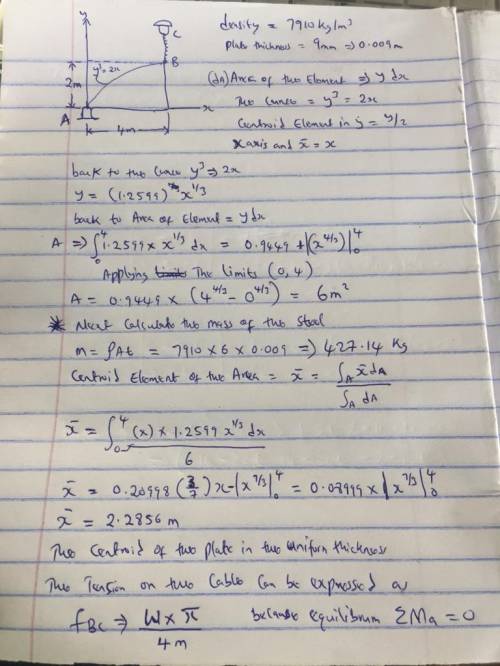 y
density = 7910 kg/m³
Plate thickness = 9mm => 0.009m
C
B
y³=2x
2m
A
x
4m
(dA) Area of the Element => y dx
The Curve = y³ = 2x
Centroid Element in ȳ = y/2
x axis and x̄ = x
back to the Curve y³ => 2x
y = (1.2599) * x^1/3
back to Area of Element = y dx
A => ∫₀⁴ 1.2599 x x^1/3 dx = 0.9449 * |(x^4/3)|₀⁴
Applying The limits (0, 4)
A = 0.9449 x (4^4/3 - 0^4/3) = 6m²
* Next Calculate the mass of the Steel
m = ρAt = 7910 x 6 x 0.009 => 427.14 Kg
Centroid Element of the Area = x̄ = ∫A x̄dA / ∫A dA
x̄ = ∫₀⁴ (x) x 1.2599 x^1/3 dx / 6
x̄ = 0.20998 (3/7) x - |x^7/3|₀⁴ = 0.08999 x |x^7/3|₀⁴
x̄ = 2.2856 m
The Centroid of the Plate in the uniform thickness
The Tension on the Cable Can be expressed as
fBC => W x x̄ / 4m because equilibrum ΣMa = 0